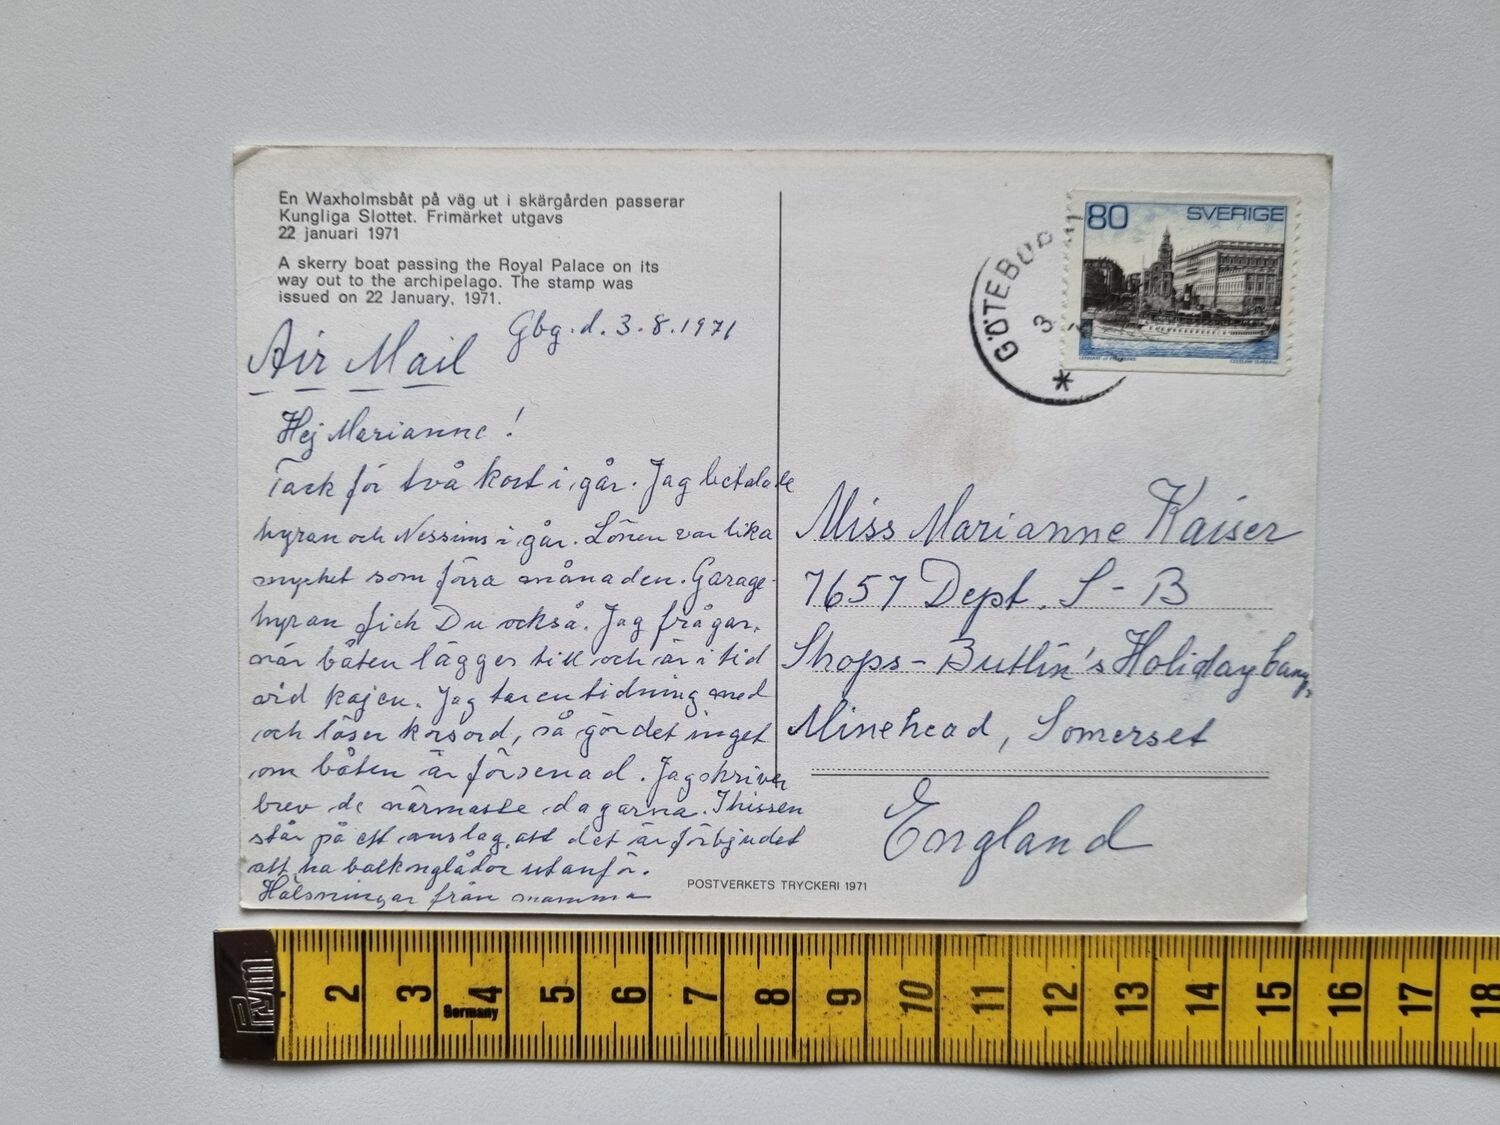 En Waxholmsbåt på väg ut i skärgården passerar
Kungliga Slottet. Frimärket utgavs
22 januari 1971
A skerry boat passing the Royal Palace on its
way out to the archipelago. The stamp was
issued on 22 January, 1971.
Air Mail
Gbg. d. 3.8.1971
Hej Marianne!
Tack för två kort i går. Jag betalade
hyran och Nessims i går. Lönen var lika
mycket som förra månaden. Garage-
hyran fick Du också. Jag frågar,
när båten lägger till och är i tid
vid kajen. Jag tar en tidning med
och löser korsord, så gör det inget
om båten är försenad. Jag skriver
brev de närmaste dagarna. I hissen
står på ett anslag, att det är förbjudet
att ha balkonglådor utanför.
Hälsningar från mamma
80 SVERIGE
GÖTEBORG
3
*
Miss Marianne Kaiser
7657 Dept. S-B
Shops - Butlin's Holiday Camp,
Minehead, Somerset
England
POSTVERKETS TRYCKERI 1971
Prym
Germany
2 3 4 5 6 7 8 9 10 11 12 13 14 15 16 17 18